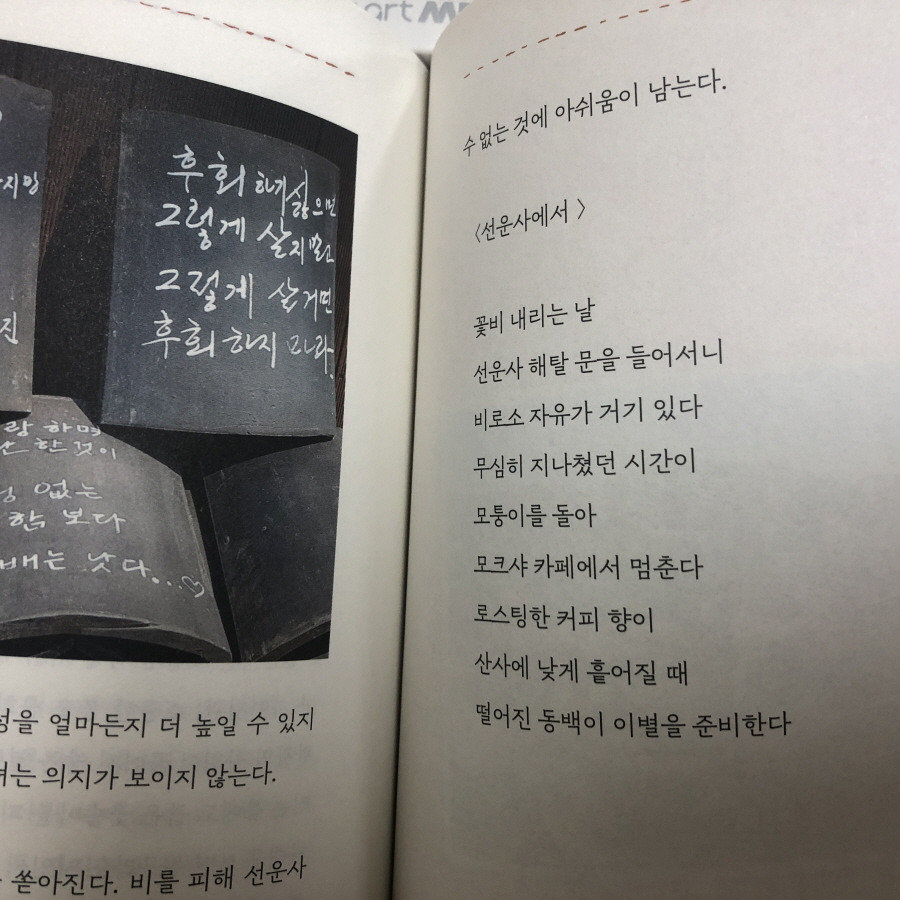 art
후회 하기싫으면
그렇게 살지말고
그렇게 살거면
후회하지 마라.
진
하면
한것이
없는
함 보다
낫다...♡
얼마든지 더 높일 수 있지
의지가 보이지 않는다.
쏟아진다. 비를 피해 선운사
수 없는 것에 아쉬움이 남는다.
〈선운사에서 〉
꽃비 내리는 날
선운사 해탈 문을 들어서니
비로소 자유가 거기 있다
무심히 지나쳤던 시간이
모퉁이를 돌아
모크샤 카페에서 멈춘다
로스팅한 커피 향이
산사에 낮게 흩어질 때
떨어진 동백이 이별을 준비한다